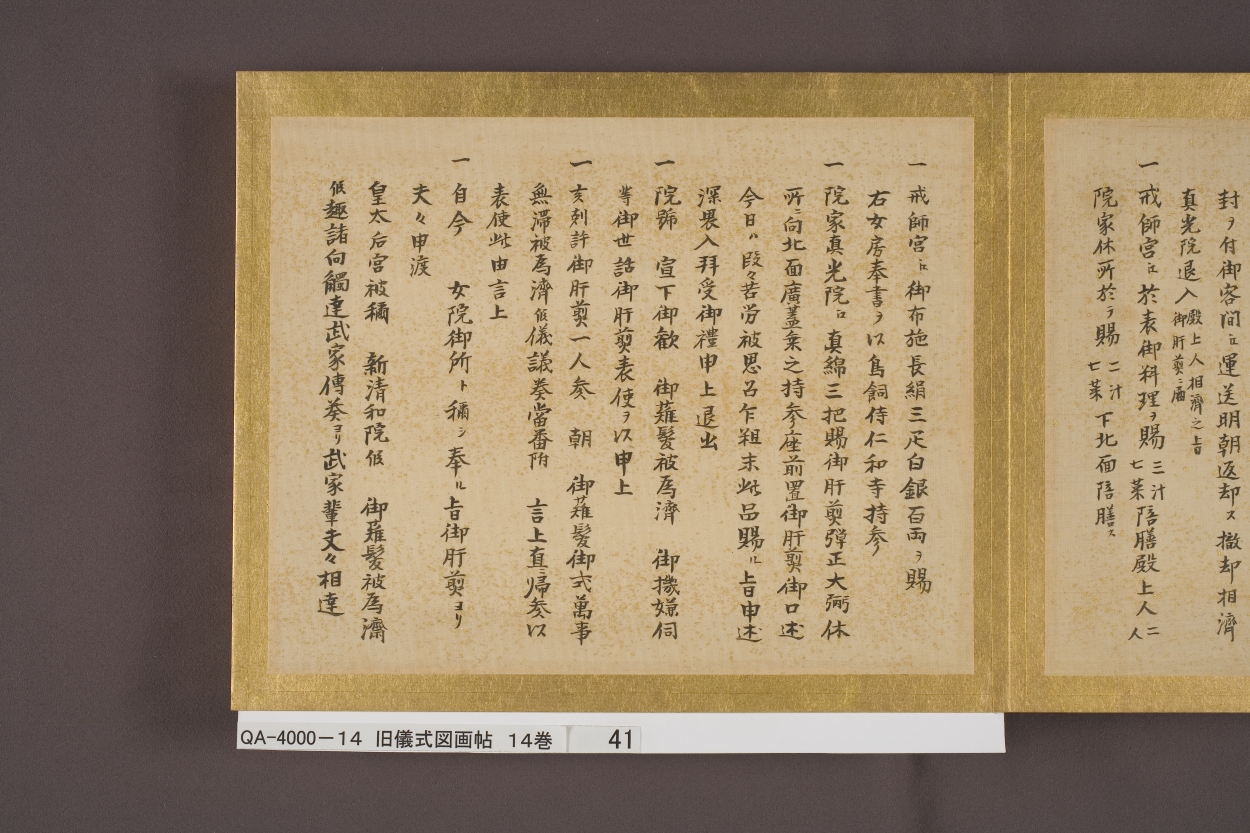 封ヲ付御客間ニ運送明朝返却ス撤却相済
真光院退入殿上人相濟之旨
御肝煎ニ届
一 戒師宮江於表御料理ヲ賜三汁
七菜陪膳殿上人二人
院家休所於テ賜二汁
七菜下北面陪膳ス
一 戒師宮江御布施長絹三疋白銀百両ヲ賜
右女房奉書ヲ以鳥飼侍仁和寺持参
一 院家真光院江真綿三把賜御肝煎弾正大弼休
所ニ向北面廣蓋乗之持参座前置御肝煎御口述
今日ハ段々苦労被思召乍粗末此品賜ル旨申述
深畏入拝受御禮申上退出
一 院號 宣下御歓 御薙髪被為濟 御機嫌伺
等御世話御肝煎表使ヲ以申上
一 亥刻許御肝煎一人参 朝 御薙髪御式萬事
無滞被為濟候儀議奏當番附 言上直ニ帰参以
表使此由言上
一 自今 女院御所ト称シ奉ル旨御肝煎ヨリ
夫々申渡
皇太后宮被称 新清和院候 御薙髪被為濟
候趣諸向觸達武家傳奏ヨリ武家輩夫々相達
QA-4000-14 旧儀式図画帖 14巻 41